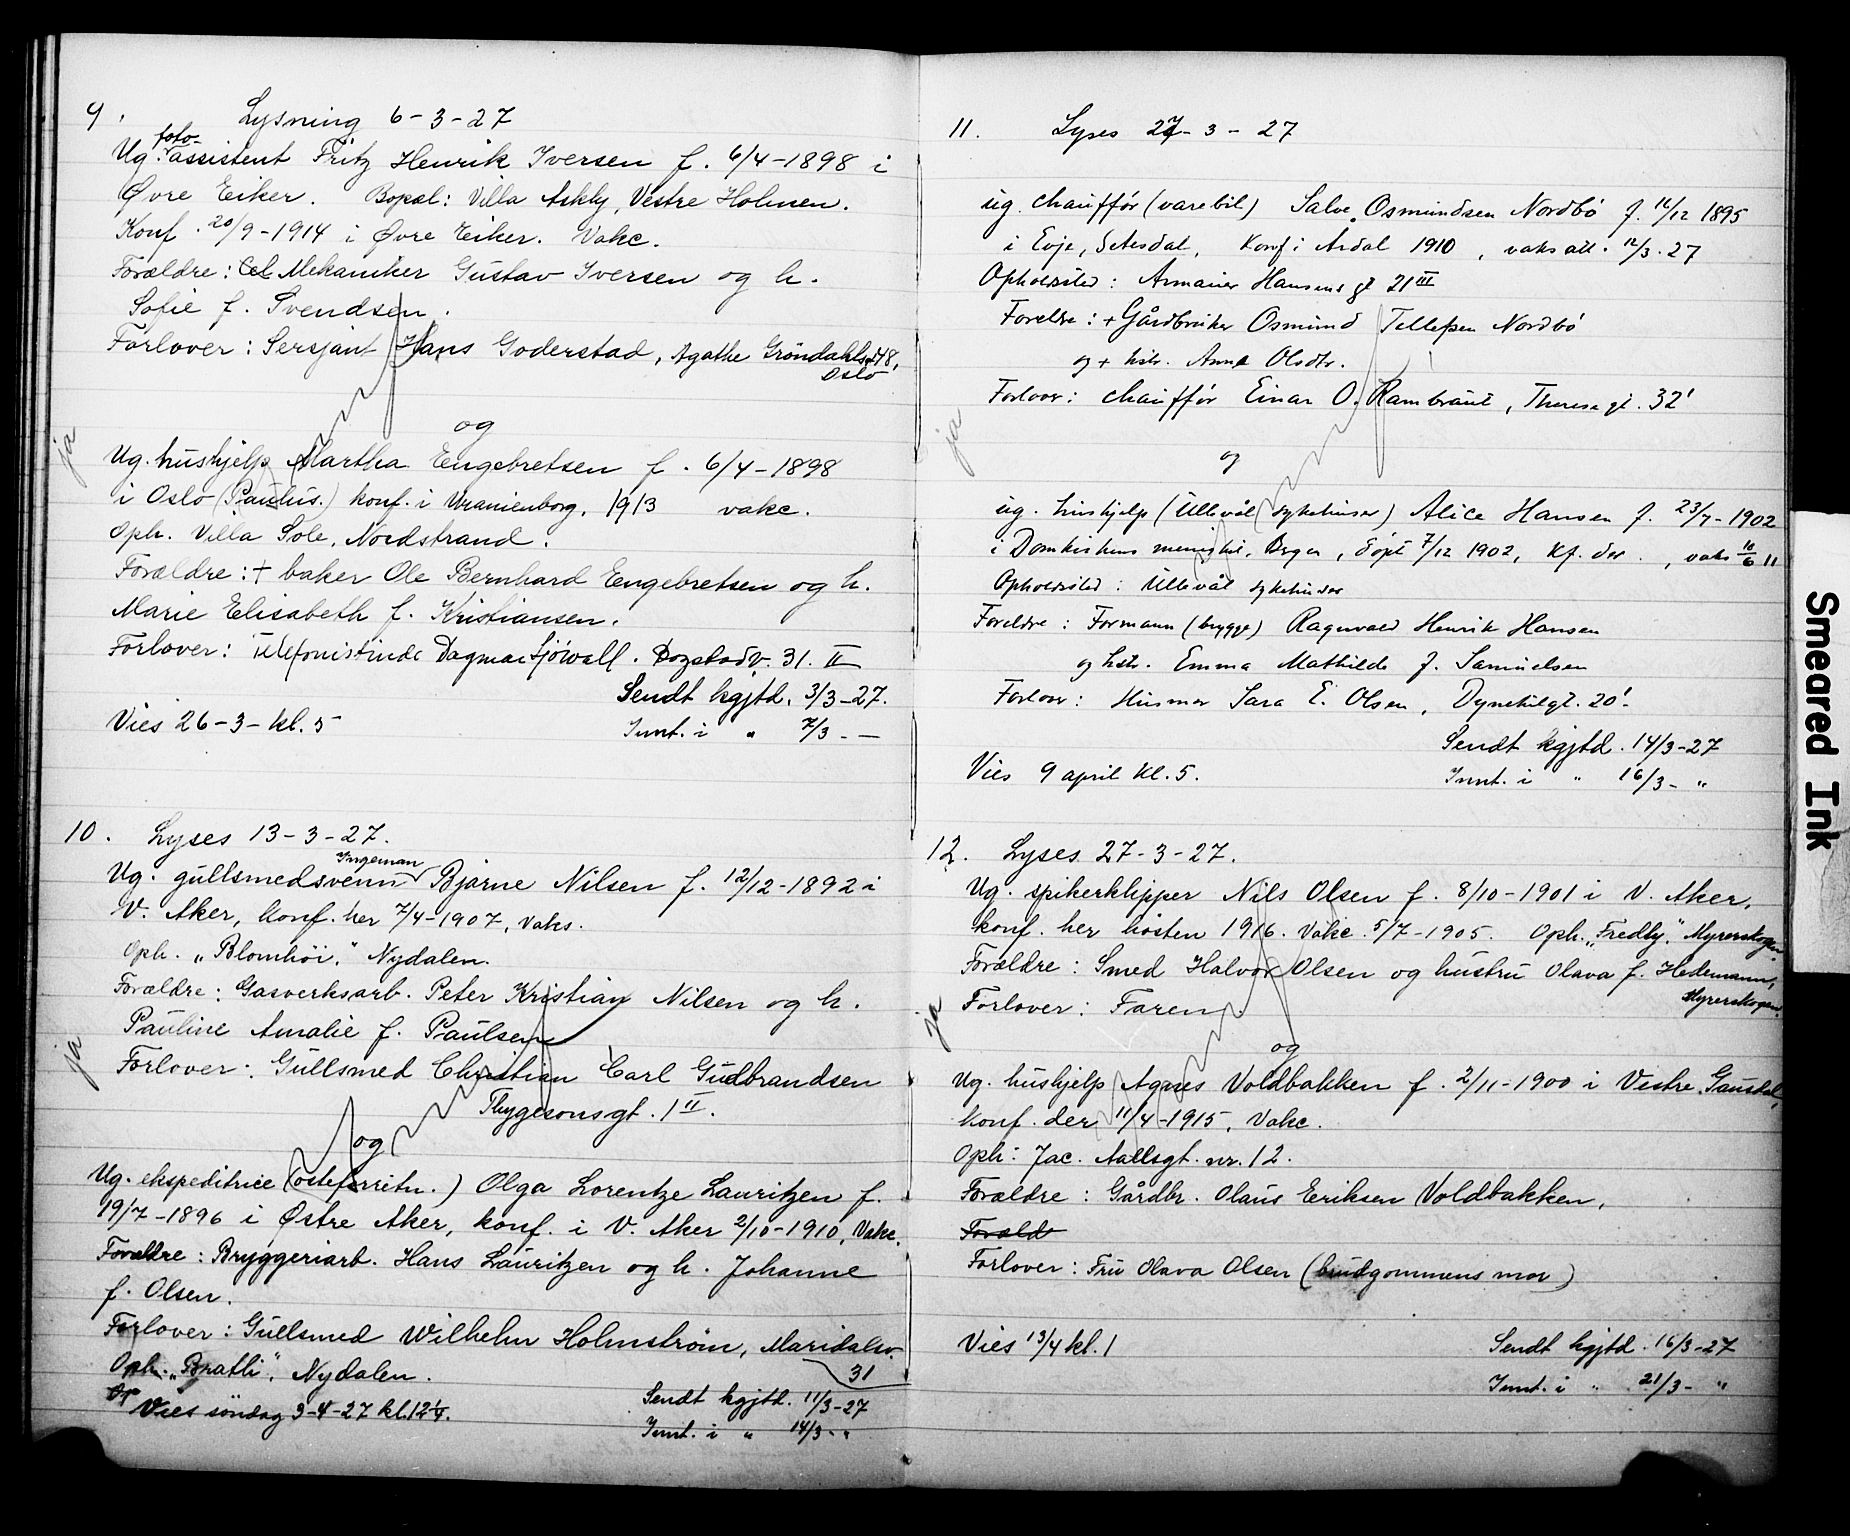 9. Lysning 6-3-27
foto-
Ug. assistent Fritz Henrik Iversen f. 6/4-1898 i
Øvre Eiker. Bopæl: Villa Askly, Vestre Holmen.
Konf. 20/9-1914 i Øvre Eiker. Vakc.
Forældre: Mekaniker Gustav Iversen og h.
Sofie f. Svendsen.
Forlover: Sersjant Hans Goderstad, Agathe Gröndahlsgt 48,
Oslo
og
ja
Ug. hushjelp Martha Engebretsen f. 6/4-1898
i Oslo (Paulus.) konf. i Uranienborg, 1913 vakc.
Oph. Villa Sole, Nordstrand.
Forældre: + baker Ole Bernhard Engebretsen og h.
Marie Elisabeth f. Kristiansen.
Forlover: Telefonistinde Dagmar Sjöwall. Bogstadv. 31. II
Sendt kgjtd. 3/3-27.
Vies 26-3- kl. 5
Innt. i " 7/3 - —
10. Lyses 13-3-27.
Ingeman
Ug. gullsmedsvenn Bjarne Nilsen f. 12/12-1892 i
V. Aker, konf. her 7/4-1907, vaks.
Oph. "Blomhöi," Nydalen.
Forældre: Gasverksarb. Peter Kristian Nilsen og h.
Pauline Amalie f. Paulsen
ja
Forlover: Gullsmed Christian Carl Gudbrandsen
Thygesonsgt. 1 II.
og
Ug. ekspeditrice (osteforretn.) Olga Lorentze Lauritzen f.
19/7-1896 i Østre Aker, konf. i V. Aker 2/10-1910, Vakc.
Forældre: Bryggeriarb. Hans Lauritzen og h. Johanne
f. Olsen.
Forlover: Gullsmed Wilhelm Holmström, Maridalsv.
31
Oph. "Bratli", Nydalen.
Vies söndag 3-4-27 kl. 12 1/4.
Sendt kgjtd. 11/3-27
Innt. i " 14/3 - "
11. Lyses 27-3-27
ug. chauffør (varebil) Salve Osmundsen Nordbö f. 12/12 1895
i Evje, Setesdal, Konf i Årdal 1910, vaks att. 12/3.27
Opholdssted: Armauer Hansens gt 21 III
Foreldre: + Gårdbruker Osmund Tellefsen Nordbö
og + hstr. Anna Olsdtr.
Forlover: chauffør Einar O. Rambraut, Theresegt. 32 I
ja
og
ug. hushjelp (Ullevål sykehuser) Alice Hansen f. 23/7-1902
i Domkirkens menighet, Bergen, döpt 7/12 1902, Kf. der., vaks 10/6 11
Opholdssted: Ullevål sykehuser
Foreldre: Formann (brygge) Ragnvald Henrik Hansen
og hstr. Emma Mathilde f. Samuelsen
Forlover: Husmor Sara E. Olsen, Dynekilgt. 20 I.
Sendt kgjtd. 14/3-27
Vies 9 april kl. 5.
Innt. i " 16/3 - "
12. Lyses 27-3-27.
Ug. spikerklipper Nils Olsen f. 8/10-1901 i V. Aker,
konf. her hösten 1916. Vakc. 5/7-1905. Oph. "Fredly," Myrerskogen.
Forældre: Smed Halvor Olsen og hustru Olava f. Hedemann,
Myrerskogen.
ja
Forlover: Faren
og
Ug. hushjelp Agnes Voldbakken f. 2/11-1900 i Vestre Gausdal,
konf. der 11/4-1915, Vakc.
Oph: Jac. Aallsgt. nr. 12.
Forældre: Gårdbr. Olaus Eriksen Voldbakken.
Foræld
Forlover: Fru Olava Olsen (brudgommens mor)
Vies 13/4 kl. 1
Sendt kgjtd. 16/3-27
Innt. i " 21/3 - "
Smeared Ink